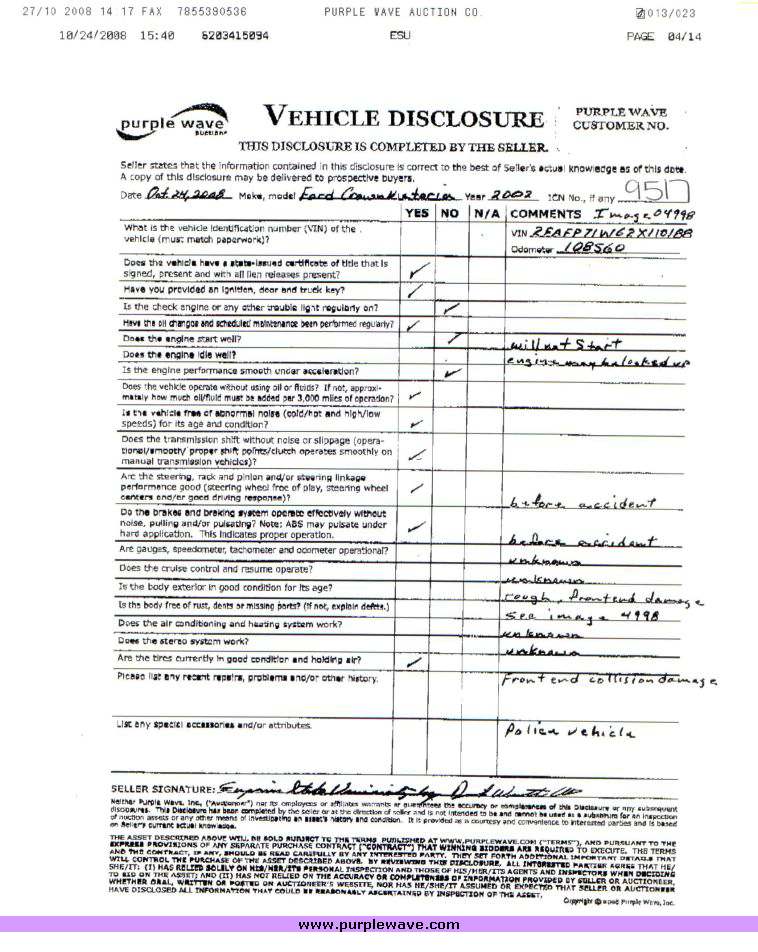 27/10 2008 14 17 FAX 7855390536 PURPLE WAVE AUCTION CO. 013/023
10/24/2008 15:40 6203415094 ESU PAGE 04/14
purple wave
auction
VEHICLE DISCLOSURE
PURPLE WAVE
CUSTOMER NO.
THIS DISCLOSURE IS COMPLETED BY THE SELLER.
Seller states that the information contained in this disclosure is correct to the best of Seller's actual knowledge as of this date.
A copy of this disclosure may be delivered to prospective buyers.
Date Oct 24, 2008 Make, model Ford Crown Victoria Year 2002 ICN No., if any 9517
YES NO N/A COMMENTS Image 04998
What is the vehicle identification number (VIN) of the
vehicle (must match paperwork)?
VIN 2FAFP71W62X110188
Odometer 108560
Does the vehicle have a state-issued certificate of title that is
signed, present and with all lien releases present?
Have you provided an ignition, door and truck key?
Is the check engine or any other trouble light regularly on?
Have the oil changes and scheduled maintenance been performed regularly?
Does the engine start well? will not start
Does the engine idle well? engine may be locked up
Is the engine performance smooth under acceleration?
Does the vehicle operate without using oil or fluids? If not, approxi-
mately how much oil/fluid must be added per 3,000 miles of operation?
Is the vehicle free of abnormal noise (cold/hot and high/low
speeds) for its age and condition?
Does the transmission shift without noise or slippage (opera-
tional/smooth/ proper shift points/clutch operates smoothly on
manual transmission vehicles)?
Are the steering, rack and pinion and/or steering linkage
performance good (steering wheel free of play, steering wheel
centers and/or good driving response)? before accident
Do the brakes and braking system operate effectively without
noise, pulling and/or pulsating? Note: ABS may pulsate under
hard application. This indicates proper operation. before accident
Are gauges, speedometer, tachometer and odometer operational? unknown
Does the cruise control and resume operate? unknown
Is the body exterior in good condition for its age? rough, front end damage
Is the body free of rust, dents or missing parts? (If not, explain defects.) see image 4998
Does the air conditioning and heating system work? unknown
Does the stereo system work? unknown
Are the tires currently in good condition and holding air?
Please list any recent repairs, problems and/or other history. Front end collision damage
List any special accessories and/or attributes. Police vehicle
SELLER SIGNATURE: Emporia State University by
Neither Purple Wave, Inc. ("Auctioneer") nor its employees or affiliates warrants or guarantees the accuracy or completeness of this Disclosure or any subsequent
disclosures. This Disclosure has been completed by the seller or at the direction of seller and is not intended to be and cannot be used as a substitute for an inspection
of auction assets or any other means of investigating an asset's history and condition. It is provided as a courtesy and convenience to interested parties and is based
on Seller's current actual knowledge.
THE ASSET DESCRIBED ABOVE WILL BE SOLD SUBJECT TO THE TERMS PUBLISHED AT WWW.PURPLEWAVE.COM ("TERMS"), AND PURSUANT TO THE
EXPRESS PROVISIONS OF ANY SEPARATE PURCHASE CONTRACT ("CONTRACT") THAT WINNING BIDDERS ARE REQUIRED TO EXECUTE. THE TERMS
AND THE CONTRACT, IF ANY, SHOULD BE READ CAREFULLY BY ANY INTERESTED PARTY. THEY SET FORTH ADDITIONAL IMPORTANT DETAILS THAT
WILL CONTROL THE PURCHASE OF THE ASSET DESCRIBED ABOVE. BY REVIEWING THIS DISCLOSURE, ALL INTERESTED PARTIES AGREE THAT HE/
SHE/IT: (I) HAS RELIED SOLELY ON HIS/HER/ITS PERSONAL INSPECTION AND THOSE OF HIS/HER/ITS AGENTS AND INSPECTORS WHEN DECIDING
TO BID ON THE ASSET; AND (II) HAS NOT RELIED ON THE ACCURACY OR COMPLETENESS OF INFORMATION PROVIDED BY SELLER OR AUCTIONEER,
WHETHER ORAL, WRITTEN OR POSTED ON AUCTIONEER'S WEBSITE, NOR HAS HE/SHE/IT ASSUMED OR EXPECTED THAT SELLER OR AUCTIONEER
HAVE DISCLOSED ALL INFORMATION THAT COULD BE REASONABLY ASCERTAINED BY INSPECTION OF THE ASSET.
Copyright © 2006 Purple Wave, Inc.
www.purplewave.com